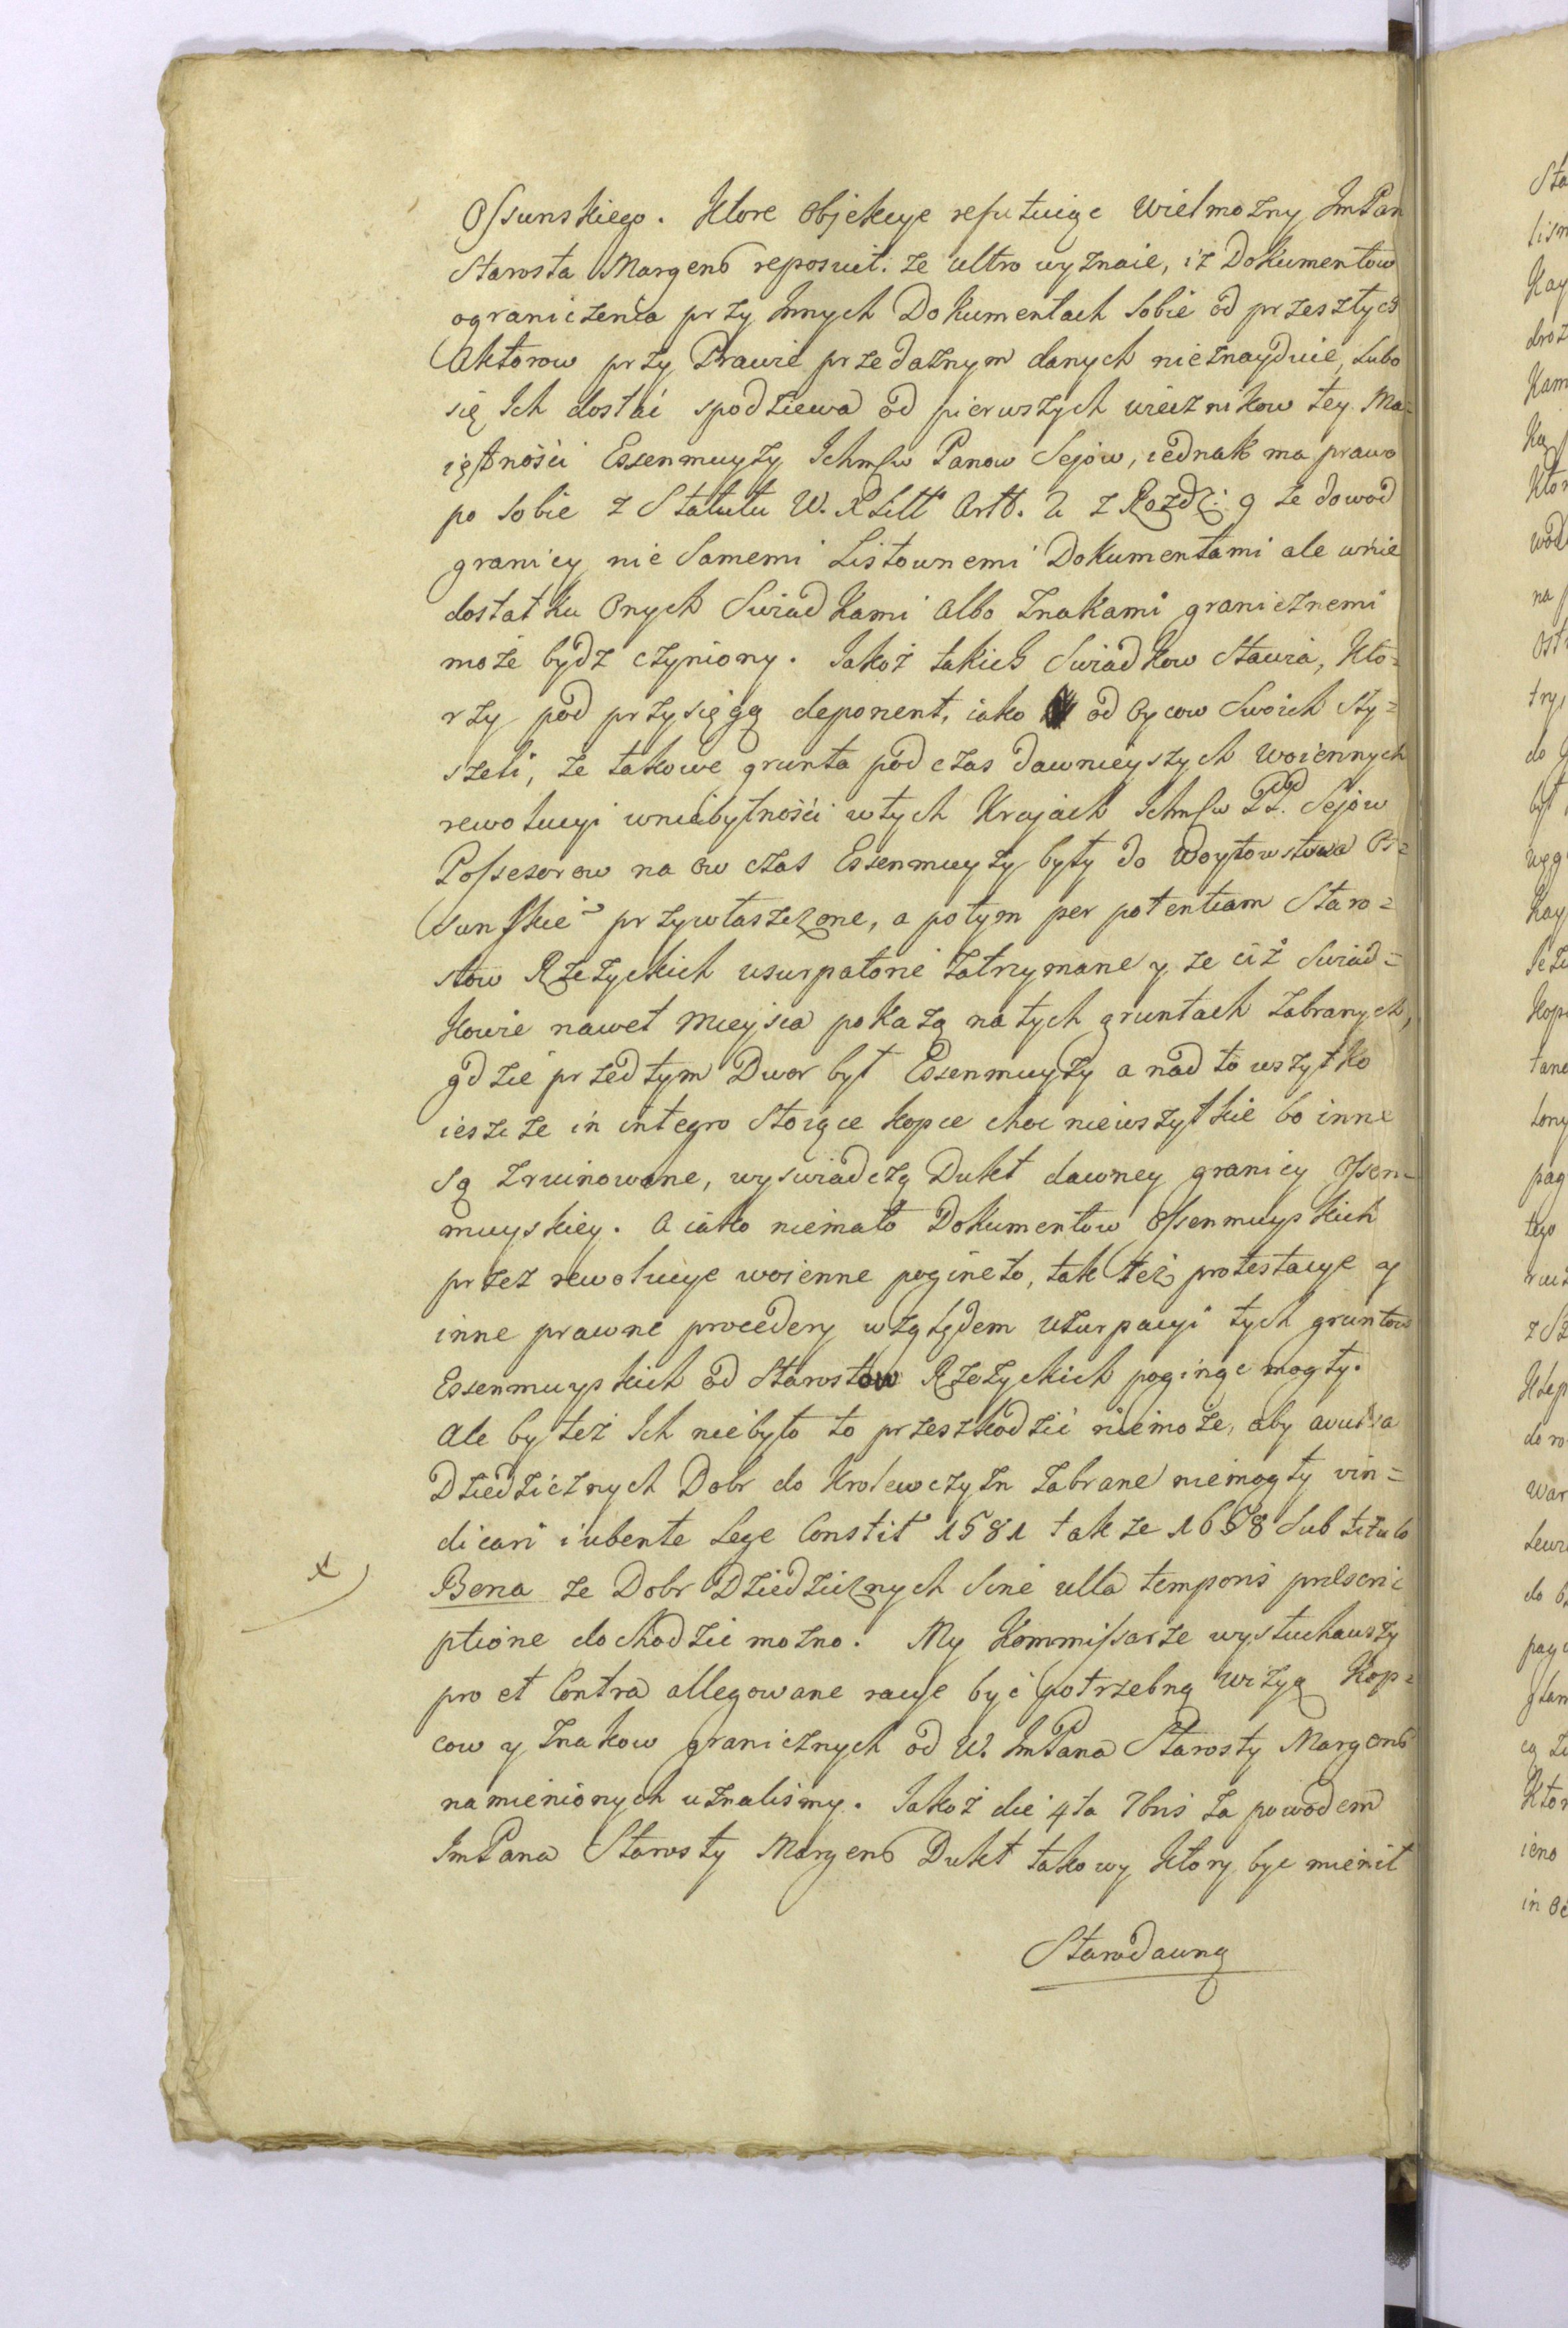 Ossunskiego. Ktore objekcye refutuiąc Wielmozny JmPan
Starosta Margenb reposuit. ze ultro wyznaie, iż Dokumentow
ograniczenia przy Innych Dokumentach sobie od przeszłych
Aktorow przy Prawie przedażnym danych nieznayduie, lubo
się Ich dostać spodziewa od pierwszych wiecznikow tey Ma=
iętności Essenmuyży Ichmſw Panow Sejow, iednak ma prawo
po sobie z Statutu W. X Litt Artt. 2 z Rozdz: 9 ze dowod
granicy nie Samemi Listownemi Dokumentami ale wnie
dostatku Onych Swiadkami albo Znakami granicznemi
może bydz czyniony. Jakoż takich Swiadkow stawia, Kto=
rzy pod przysięgą deponent, iako od Oycow Swoich sły=
szeli, że takowe grunta podczas dawnieyszych woiennych
rewolucyi wniebytności wtych Krajach Ichmſw PP. Sejow
Possesorow na ow czas Essenmuyży były do Woytowstwa Os=
sunskie° przywłaszczone, a potym per potentiam Staro=
stow Rzeżyckich usurpatorie zatrzymane y że ciż Swiad=
kowie nawet mieysca pokażą na tych gruntach zabranych,
gdzie przedtym Dwor był Essenmuyży a nad to wszytko
ieszcze in integro stoiące kopce choc niewszytkie bo inne
są zruinowane, wyswiadczą Dukt dawney granicy Essen=
muyskiey. A iako niemało Dokumentow Essenmuyskich
przez rewolucye woienne pogineło, tak też protestacye y
inne prawne procedery względem Uzurpacyi tych gruntow
Essenmuyskich od Starostow Rzeżyckich poginąc mogły.
Ale by też Ich niebyło to przeszkodzić niemoże, aby avulsa
Dziedzicznych Dobr do Krolewczyzn zabrane niemogły vin=
dicari iubente Lege Constit 1581 takze 1658 Sub titulo
x) Bona ze Dobr Dziedzicznych Sine ulla temporis præscri
ptione dochodzić można. My Kommissarze wysłuchawszy
pro et Contra allegowane racye być potrzebną Wizyą Kop=
cow y Znakow granicznych od W. JmPana Starosty Margenb
namienionych uznalismy. Jakoż die 4ta 7bris za powodem
JmPana Starosty Margenb Dukt takowy ktory być mienił
Starodawną